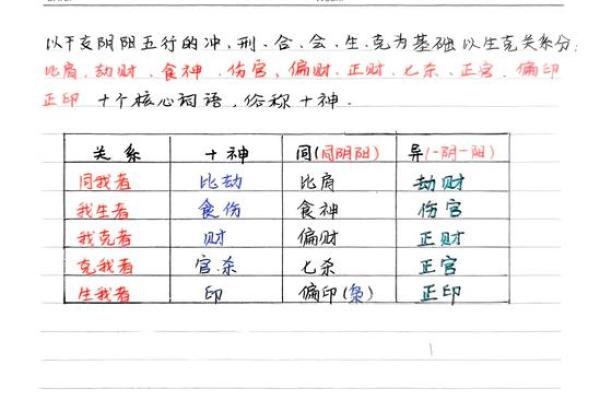 以干支阴阳五行的冲、刑、合、会、生、克为基础以生克关系分:
比肩、劫财、食神、伤官、偏财、正财、七杀、正官、偏印
正印 十个核心词语,俗称十神.
关系 十神 同(同阴阳) 异(一阴一阳)
同我者 比劫 比肩 劫财
我生者 食伤 食神 伤官
我克者 财 偏财 正财
克我者 官.杀 七杀 正官
生我者 印 偏印(枭) 正印